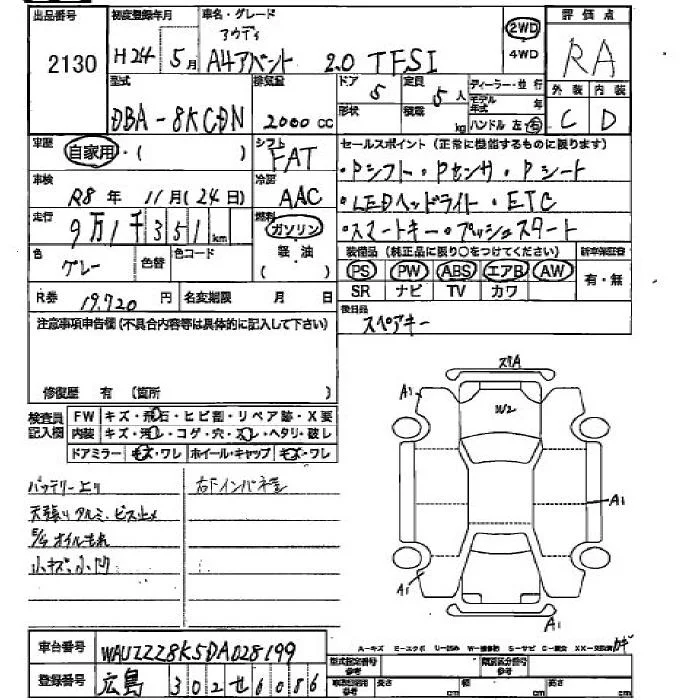 出品番号 2130
初度登録年月 H24年 5月
車名・グレード アウディ A4アバント 2.0 TFSI
2WD 4WD
評価点 RA
型式 DBA-8KCDN
排気量 2000 CC
ドア 5 定員 5人
形状 積載 kg
ディーラー・並行
モデル年式 年
ハンドル 左・右
外装 内装
C D
車歴 自家用・( )
シフト FAT
セールスポイント (正常に機能するものに限ります)
・Pシフト・Pセンサ・Pシート
車検 R8年 11月(24日)
冷房 AAC
・LEDヘッドライト・ETC
走行 9万1千351km
燃料 ガソリン 軽油 ( )
・スマートキー・プッシュスタート
色 グレー 色替 色コード
装備品 (純正品に限り〇をつけてください) 新車保証書
PS PW ABS エアB AW 有・無
SR ナビ TV カワ
R券 19,720円 名変期限 月 日
後日品 スペアキー
注意事項申告欄(不具合内容等は具体的に記入して下さい)
修復歴 有 (箇所 )
検査員記入欄 FW キズ・飛石・ヒビ割・リペア跡・X要
内装 キズ・汚レ・コゲ・穴・スレ・ヘタリ・破レ
ドアミラー キズ・ワレ ホイール・キャップ キズ・ワレ
スリA
A1
W2
A1
A1
A1
バッテリー上り 右下インパネ金
天張りタルミ、ビス止メ
E/G オイルもれ
小キズ、小凹
車台番号 WAUZZZ8K5DA028199
A-キズ E-エクボ U-凹み W-補修跡 S-サビ C-腐食 XX-交換済
登録番号 広島 302 せ 6086
型式指定番号 参考 類別区分番号 参考
参考 長さ cm 幅 cm 高さ cm